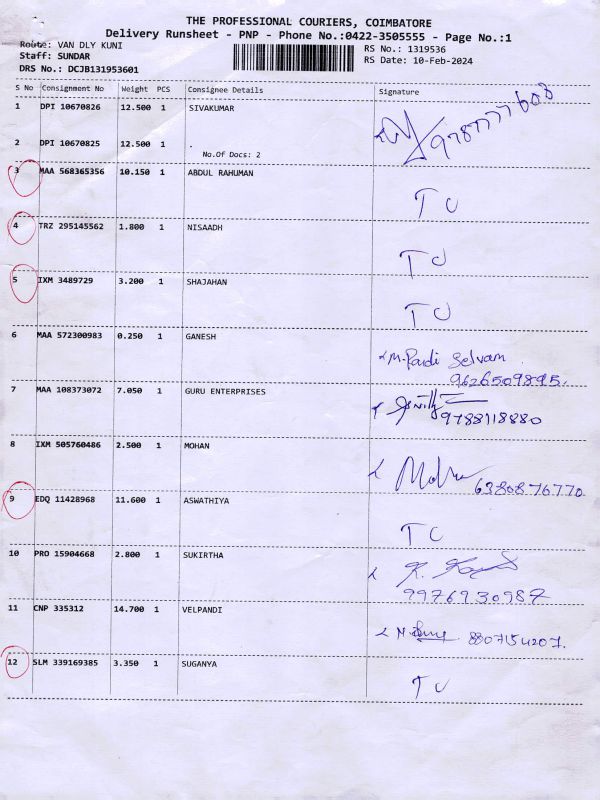 THE PROFESSIONAL COURIERS, COIMBATORE
Delivery Runsheet - PNP - Phone No.:0422-3505555 - Page No.:1
Route: VAN DLY KUNI RS No.: 1319536
Staff: SUNDAR RS Date: 10-Feb-2024
DRS No.: DCJB131953601
S No Consignment No Weight PCS Consignee Details Signature
1 DPI 10670826 12.500 1 SIVAKUMAR
2 DPI 10670825 12.500 1 .
No.Of Docs: 2
3 MAA 568365356 10.150 1 ABDUL RAHUMAN TC
4 TRZ 295145562 1.800 1 NISAADH TC
5 IXM 3489729 3.200 1 SHAJAHAN TC
6 MAA 572300983 0.250 1 GANESH M. Pandi Selvam
9626509895.
7 MAA 108373072 7.050 1 GURU ENTERPRISES 9788118880
8 IXM 505760486 2.500 1 MOHAN 6380876770
9 EDQ 11428968 11.600 1 ASWATHIYA TC
10 PRO 15904668 2.800 1 SUKIRTHA
9976930987
11 CNP 335312 14.700 1 VELPANDI 8807154207.
12 SLM 339169385 3.350 1 SUGANYA TC